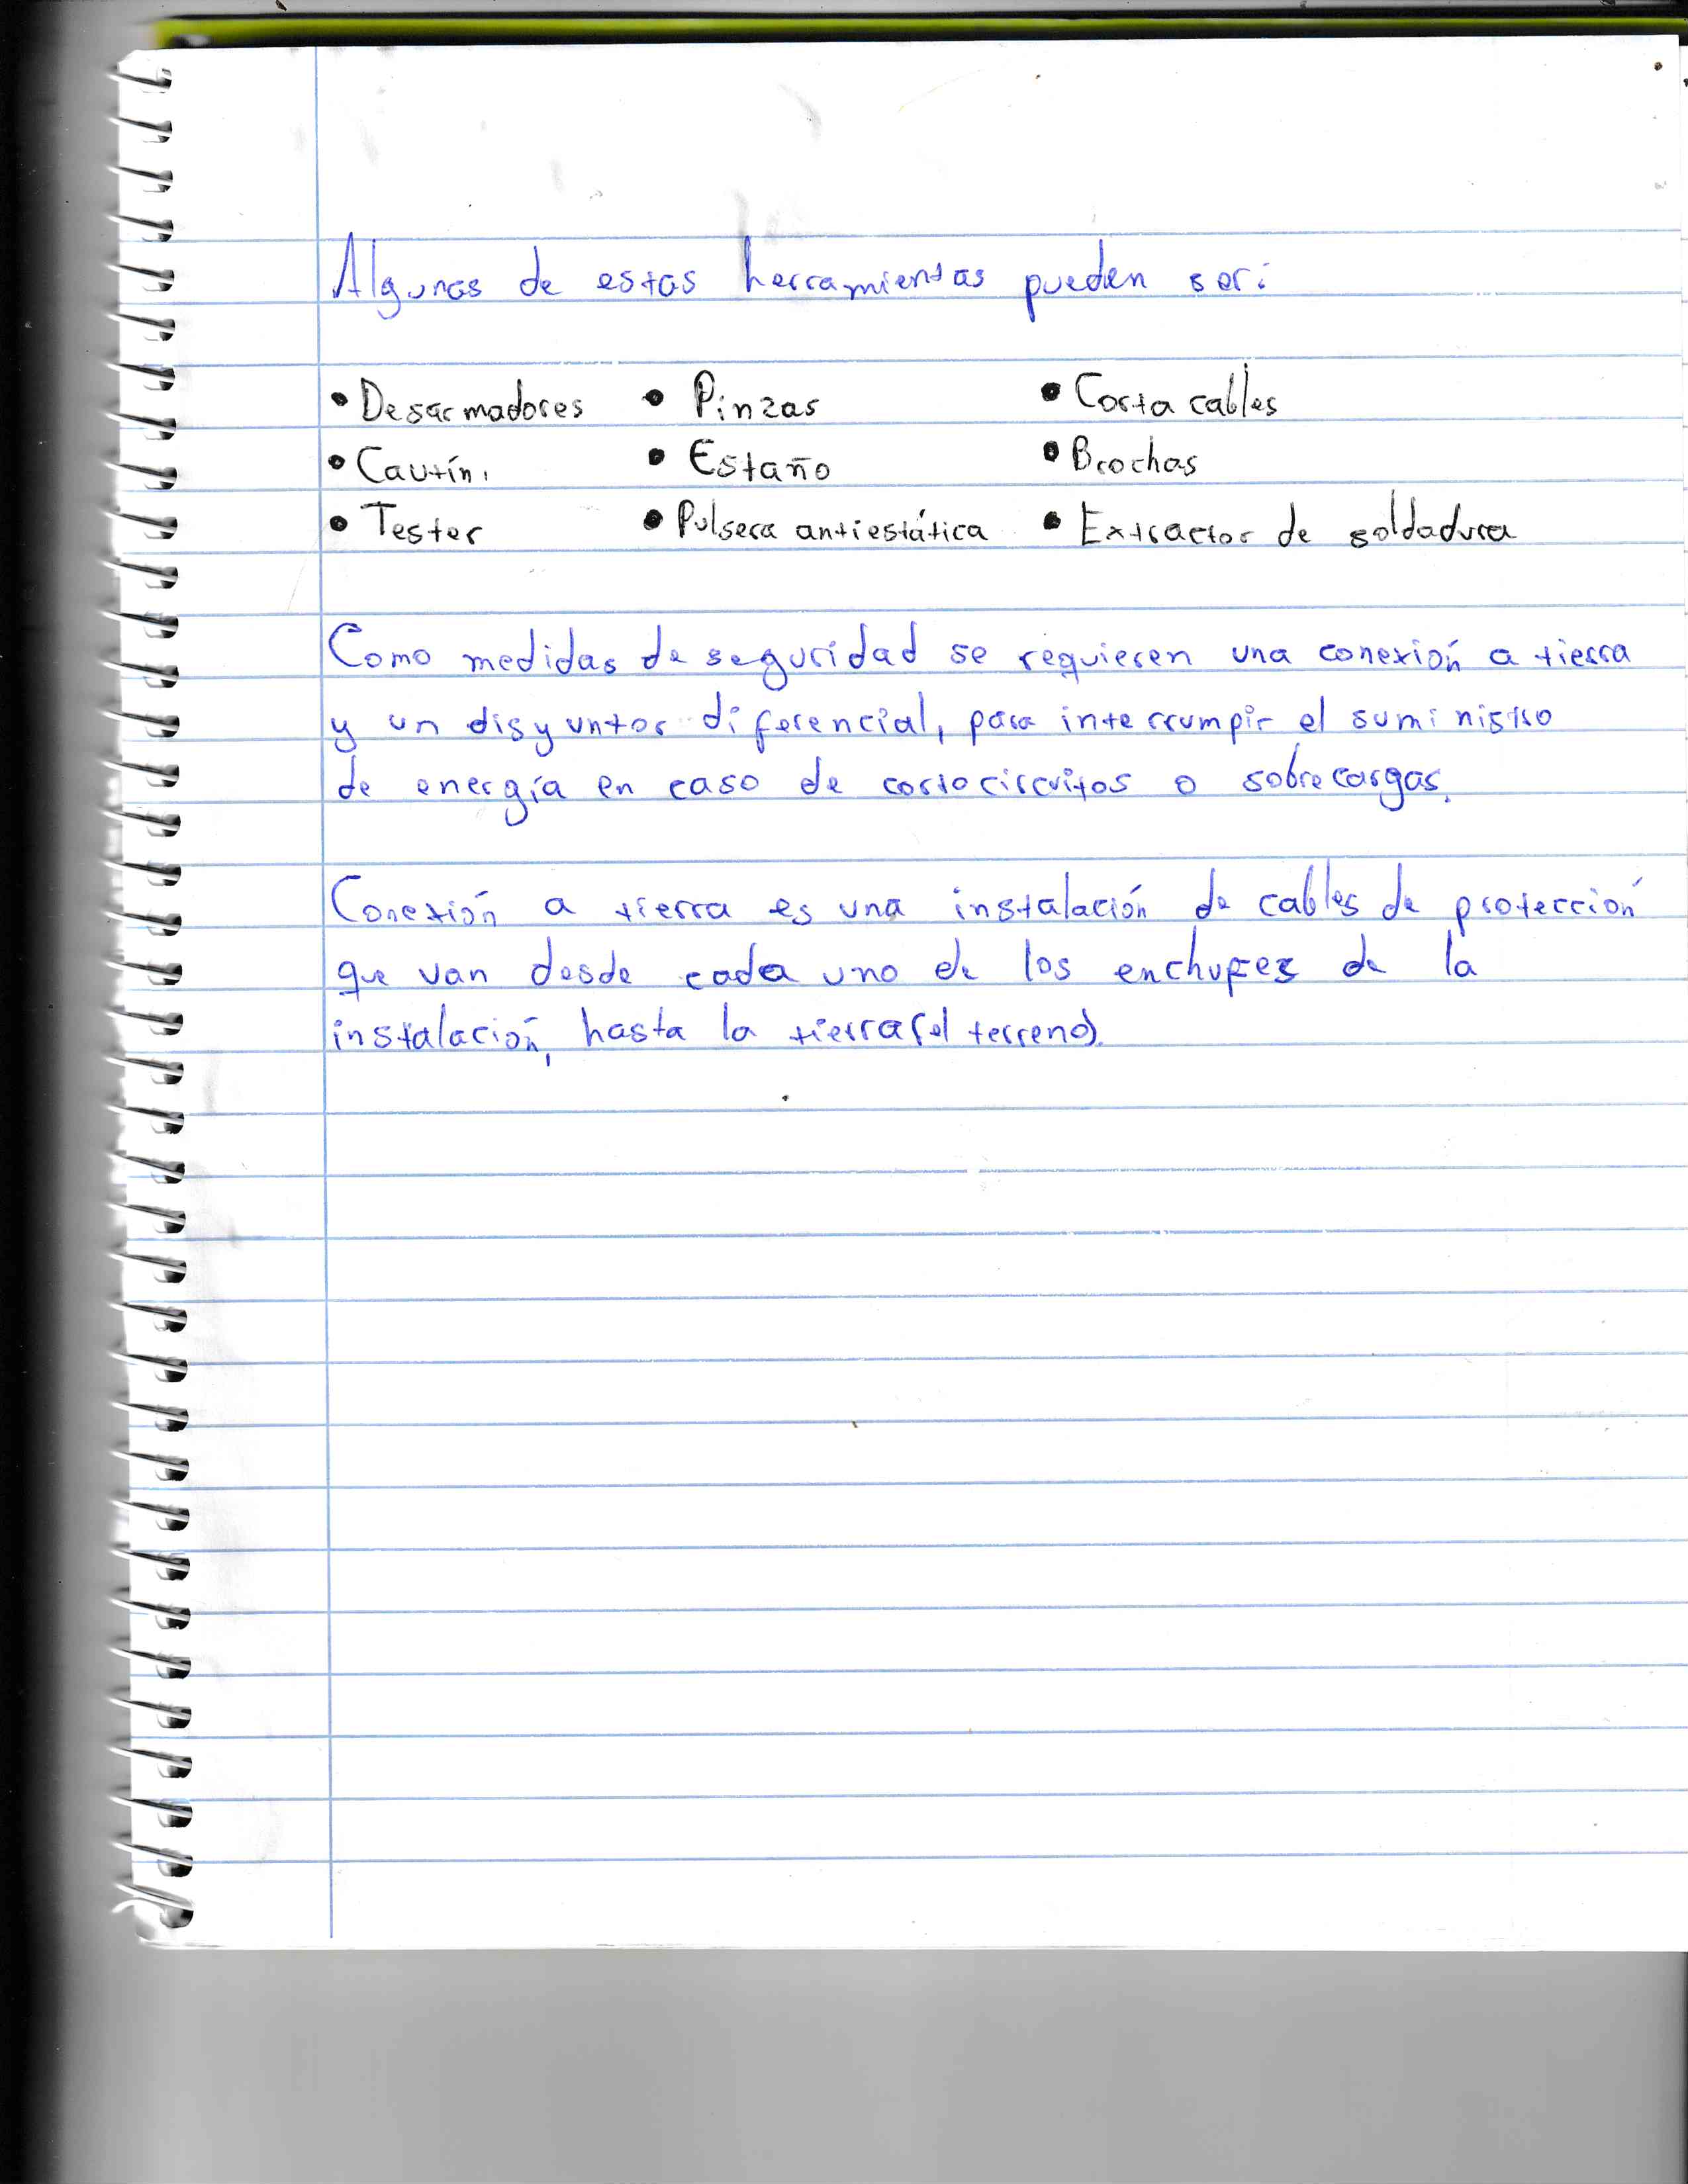 Algunas de estas herramientas pueden ser:
• Desarmadores • Pinzas • Corta cables
• Cautín. • Estaño • Brochas
• Tester • Pulsera antiestática • Extractor de soldadura
Como medidas de seguridad se requieren una conexión a tierra
y un disyuntor diferencial, para interrumpir el suministro
de energía en caso de cortocircuitos o sobrecargas.
Conexión a tierra es una instalación de cables de protección
que van desde cada uno de los enchufes de la
instalación, hasta la tierra (el terreno).